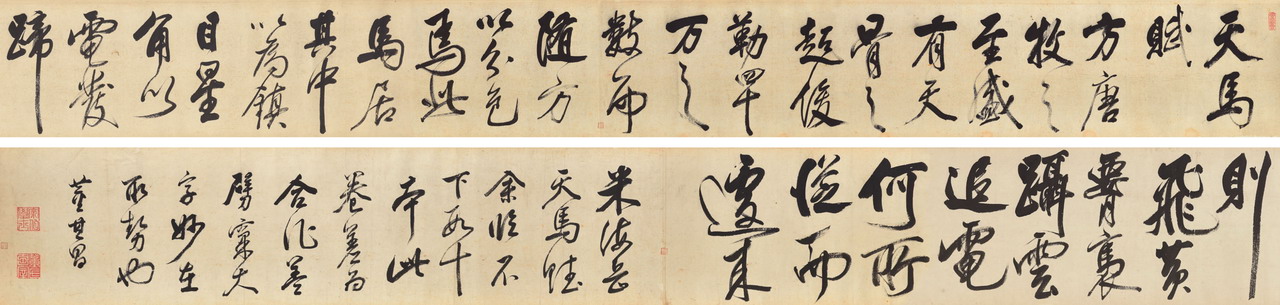 天馬
賦
方唐
牧之
至盛
有天
骨之
超俊
勒四十
万之
數而
隨方
以分色
焉此
馬居
其中
以為鎮
目星
角以
電發
蹄
則
飛黃
腰褭
躡雲
追電
何所
從而
遽來
米海岳
天馬賦
余臨不
下數十
本此
卷差為
合作蓋
劈窠大
字妙在
取勢也
董其昌